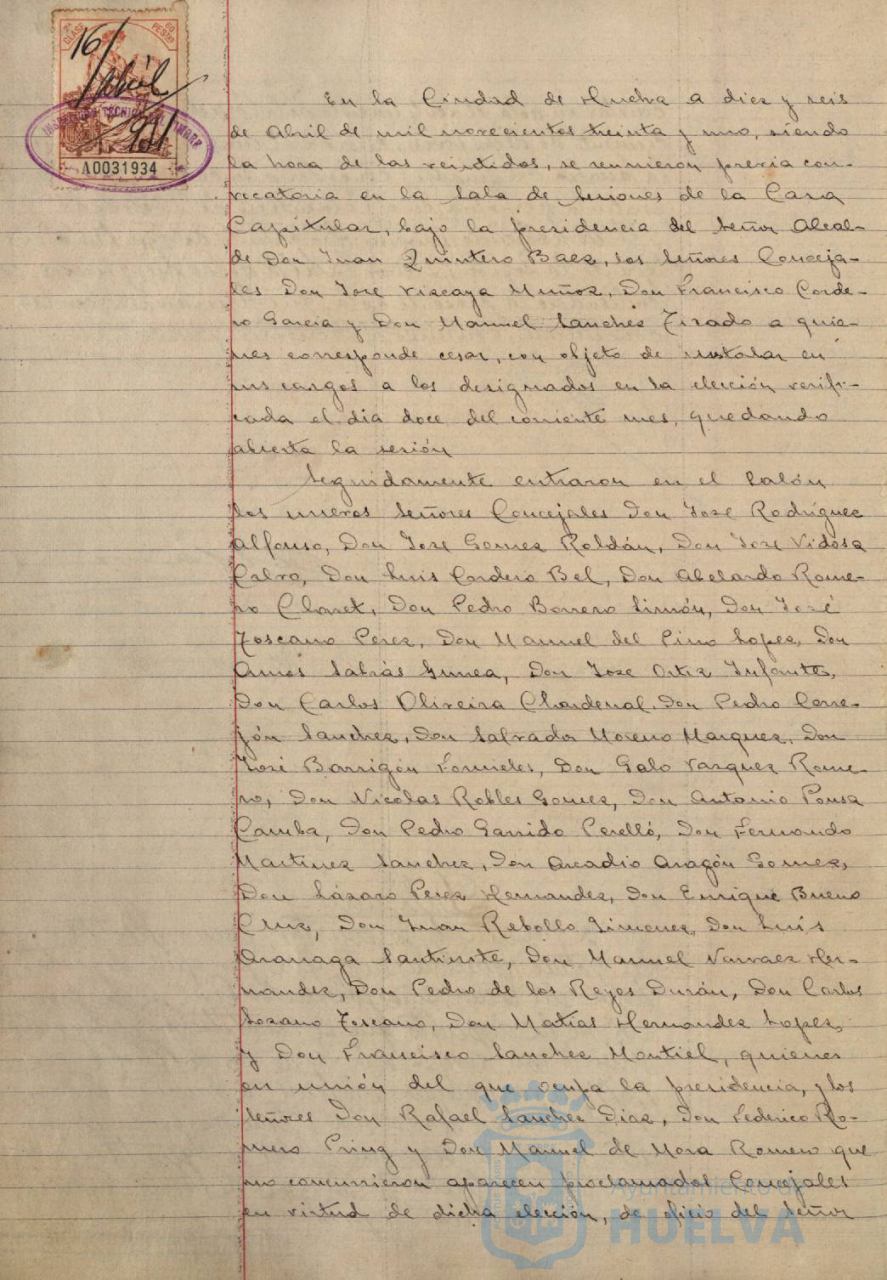 16/
Abril
931
A0031934
En la Ciudad de Huelva a diez y seis
de Abril de mil novecientos treinta y uno, siendo
la hora de las veintidos, se reunieron previa con-
vocatoria en la Sala de Sesiones de la Casa
Capitular, bajo la presidencia del Señor Alcal-
de Don Juan Quintero Baez, los Señores Conceja-
les Don Jose Vizcaya Muñoz, Don Francisco Corde-
ro Garcia y Don Manuel Sanchez Tirado a quie-
nes corresponde cesar, con objeto de instalar en
sus cargos a los designados en la elección verifi-
cada el dia doce del corriente mes, quedando
abierta la sesión
Seguidamente entraron en el Salón
los nuevos Señores Concejales Don Jose Rodríguez
Alfonso, Don Jose Gomez Roldán, Don Jose Vidosa
Calvo, Don Luis Cordero Bel, Don Abelardo Rome-
ro Claret, Don Pedro Borrero Limón, Don José
Toscano Perez, Don Manuel del Pino Lopez, Don
Amos Sabrás Gurrea, Don Jose Ortiz Infante,
Don Carlos Oliveira Chardenal, Don Pedro Cerre-
jón Sanchez, Don Salvador Moreno Marquez, Don
José Barrigón Fornieles, Don Galo Vazquez Rome-
ro, Don Nicolas Robles Gomez, Don Antonio Pousa
Camba, Don Pedro Garrido Perelló, Don Fernando
Martinez Sanchez, Don Arcadio Aragón Gomez,
Don Lázaro Perez Hernandez, Don Enrique Bueno
Cruz, Don Juan Rebollo Jimenez, Don Luís
Don Manuel Narvaez Her-
nandez, Don Pedro de los Reyes Durán, Don Carlos
Lozano Toscano, Don Matías Hernandez Lopez,
y Don Francisco Sanchez Montiel, quienes
en unión del que ocupa la presidencia, y los
Señores Don Rafael Sanchez Diaz, Don Federico Ro-
mero Pring y Don Manuel de Mora Romero que
no concurrieron aparecen proclamados Concejales
en virtud de dicha elección, de oficio del Señor
Ayuntamiento de
HUELVA